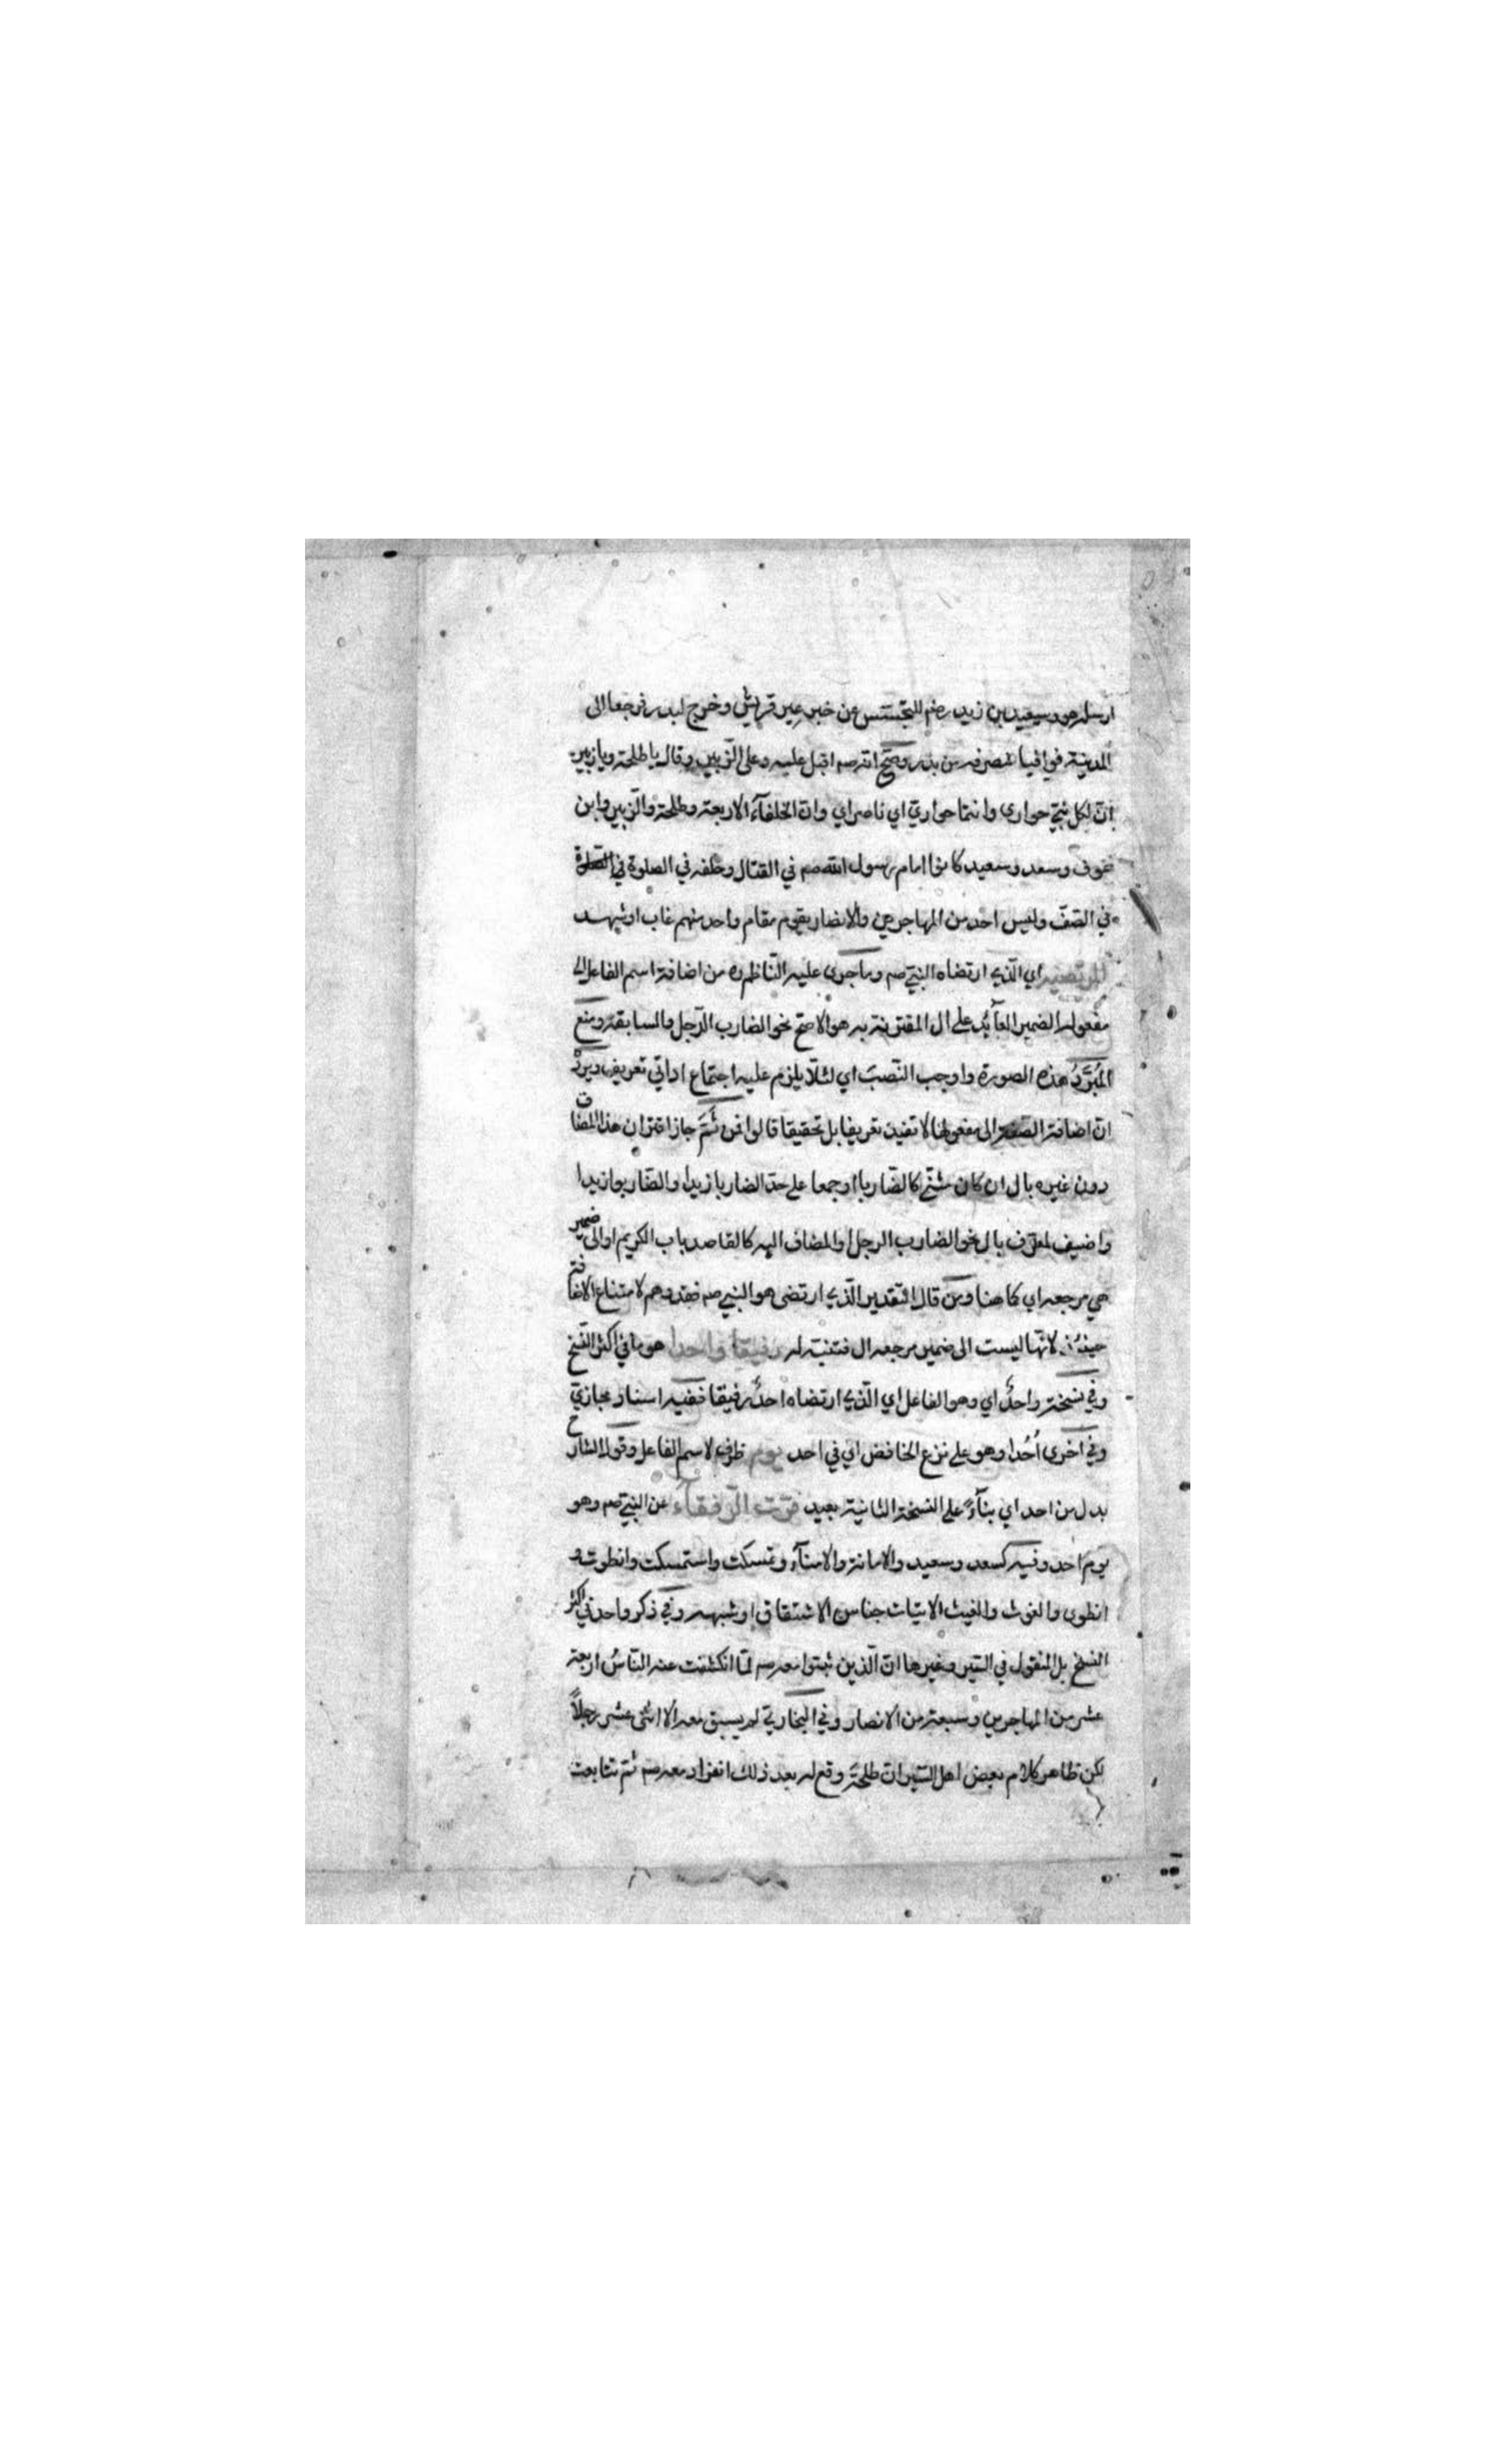 ارسله هو وسعيد بن زيد رضم للتجسس عن خبر عير قريش وخرج لبدر فرجعا الى
المدينة فوافيا منصرفه من بدر وصح انه صم اقبل عليه وعلى الزبير وقال يا طلحة ويا زبير
ان لكل نبيّ حوارى وانتما حواريّ اي ناصراي وان الخلفآء الاربعة وطلحة والزبير وابن
عوف وسعد وسعيد كانوا امام رسول الله صم في القتال وخلفه في الصلوة في
في الصفّ وليس احد من المهاجرين والانصار يقوم مقام واحد منهم غاب او شهد
المرتضيه اي الذي ارتضاه النبي صم وما جرى عليه الناظم ره من اضافة اسم الفاعل الى
مفعوله الضمير العآئد على ال المقترنة به هو الاصح نحو الضارب الرجل والسابقه ومنع
المُبَرَّدُ هذه الصورة واوجب النصبَ اي لئلا يلزم عليه اجتماع اداتي تعريف ويردّ
انّ اضافة الصفة الى مفعولها لا تفيد تعريفا بل تحقيقا قالوا فمن ثَمَّ جاز اقتران هذا المضاف
دون غيره بال ان كان مثنّى كالضاربا او جمعا على حدّ الضاربا زيدا والضاربوا زيدا
واضيف لمعرّف بال نحو الضارب الرجل او المضاف اليه كالقاصد باب الكريم او الى ضمير
هي مرجعه اي كما هنا ومن قال التقدير الذي ارتضى هو النبي صم فقد وهم لامتناع الاضافة
حينئذ لانها ليست الى ضمير مرجعه ال فتنبه له رفيقا واحدا هو ما في اكثر النسخ
وفي نسخة واحدٌ اي وهو الفاعل اي الذي ارتضاه احدٌ رفيقا ففيه اسناد مجازيّ
وفي اخرى اُحُدا وهو على نزع الخافض اي في احد يوم ظرف لاسم الفاعل وقول الشارح
بدل من احد اي بنآءً على النسخة الثانية بعيد فرّت الرّفقآء عن النبي صم وهو
يوم احد وفيه كسعد وسعيد والامانة والامنآء وتمسكت واستمسكت وانطوت و
انطوى والغوث والغيث الاتيات جناس الاشتقاق او شبهه وفي ذكر واحد في اكثر
النسخ بل المنقول في السير وغيرها انّ الذين ثبتوا معه صم لمّا انكشفت عنه الناسُ اربعة
عشر من المهاجرين وسبعة من الانصار وفي البخاريّ لم يسبق معه الا اثنى عشر رجلاً
لكن ظاهر كلام بعض اهل السير ان طلحة وقع له بعد ذلك انفراد معه صم ثم تتابعت